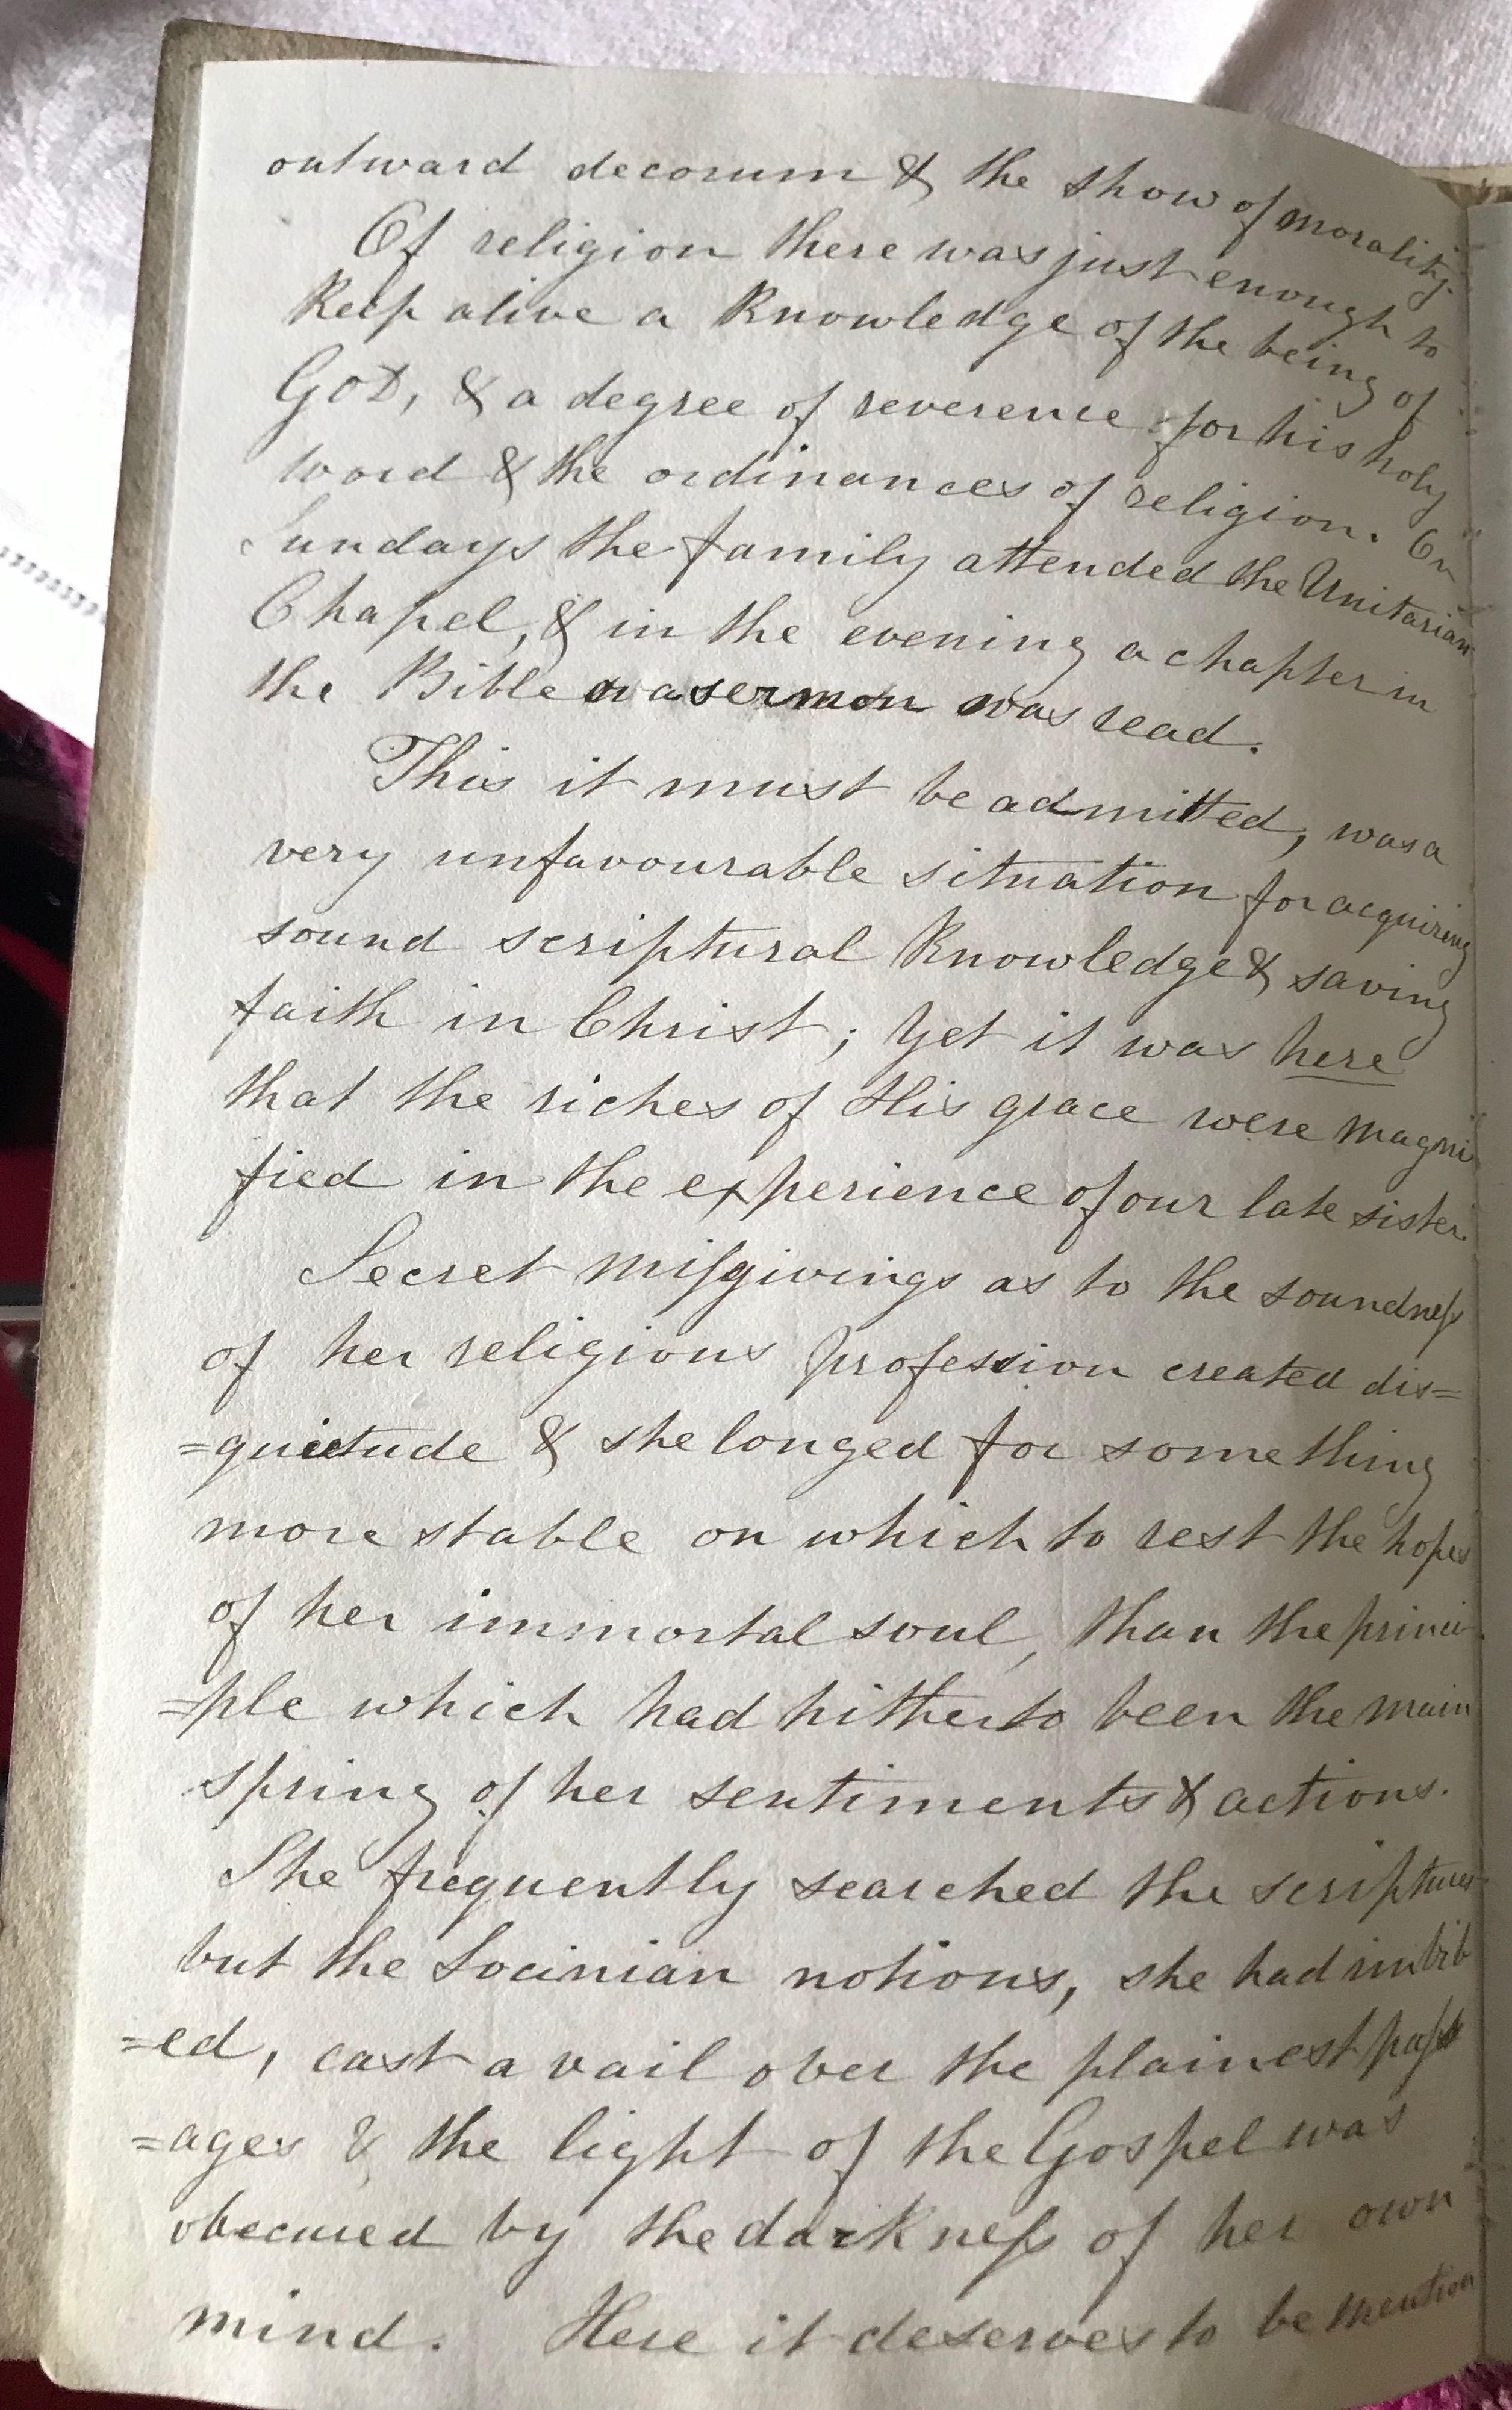 outward decorum & the show of morality.
Of religion there was just enough to
keep alive a knowledge of the being of
GOD, & a degree of reverence for his holy
word & the ordinances of religion. On
Sundays the family attended the Unitarian
Chapel, & in the evening a chapter in
the Bible or a sermon was read.
This it must be admitted, was a
very unfavourable situation for acquiring
sound scriptural knowledge & saving
faith in Christ; yet it was here
that the riches of His grace were magni
fied in the experience of our late sister.
Secret miſgivings as to the soundneſs
of her religious profession created dis=
=quietude & she longed for something
more stable on which to rest the hopes
of her immortal soul, than the princi
=ple which had hitherto been the main
spring of her sentiments & actions.
She frequently searched the scriptures
but the Socinian notions, she had imbib
=ed, cast a vail over the plainest paſs
=ages & the light of the Gospel was
obscured by the darkneſs of her own
mind. Here it deserves to be mention